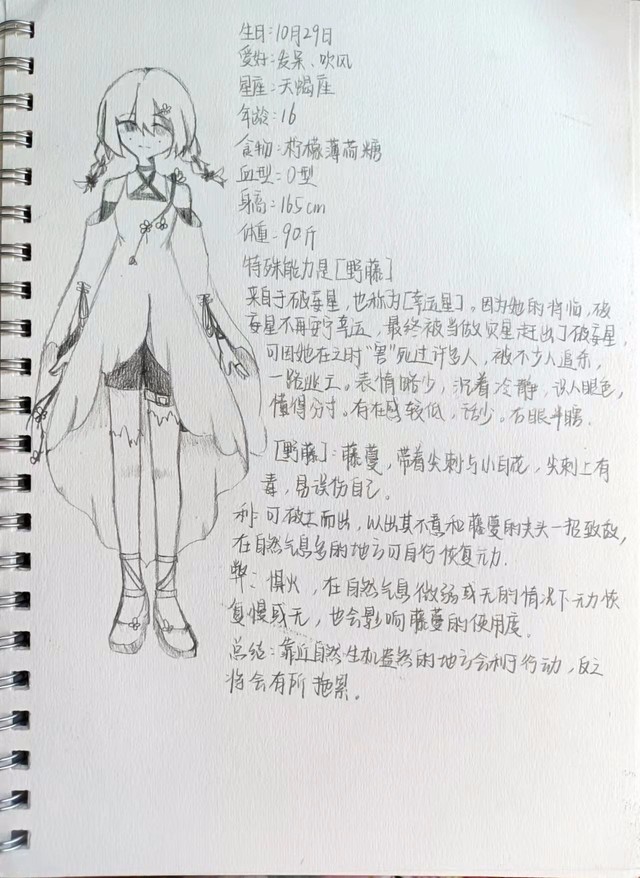 生日:10月29日
爱好:发呆、吹风
星座:天蝎座
年龄:16
食物:柠檬薄荷糖
血型:O型
身高:165cm
体重:90斤
特殊能力是[野藤]
来自于破晦星,也称为[幸运星]。因为她的降临,破
星不再安宁幸运,最终被当做灾星赶出了破星,
可因她在之时“害”死过许多人,被不少人追杀,
一路逃亡。表情略少,沉着冷静,识人眼色,
懂得分寸。存在感较低,话少。右眼半瞎.
[野藤]:藤蔓,带着尖刺与小白花,尖刺上有
毒,易误伤自己.
利:可破土而出,以出其不意和藤蔓的尖头一招致敌,
在自然气息多的地方可自行恢复元力.
弊:惧火,在自然气息微弱或无的情况下元力恢
复慢或无,也会影响藤蔓的使用度.
总结:靠近自然生机盎然的地方会利于行动,反之
将会有所拖累。